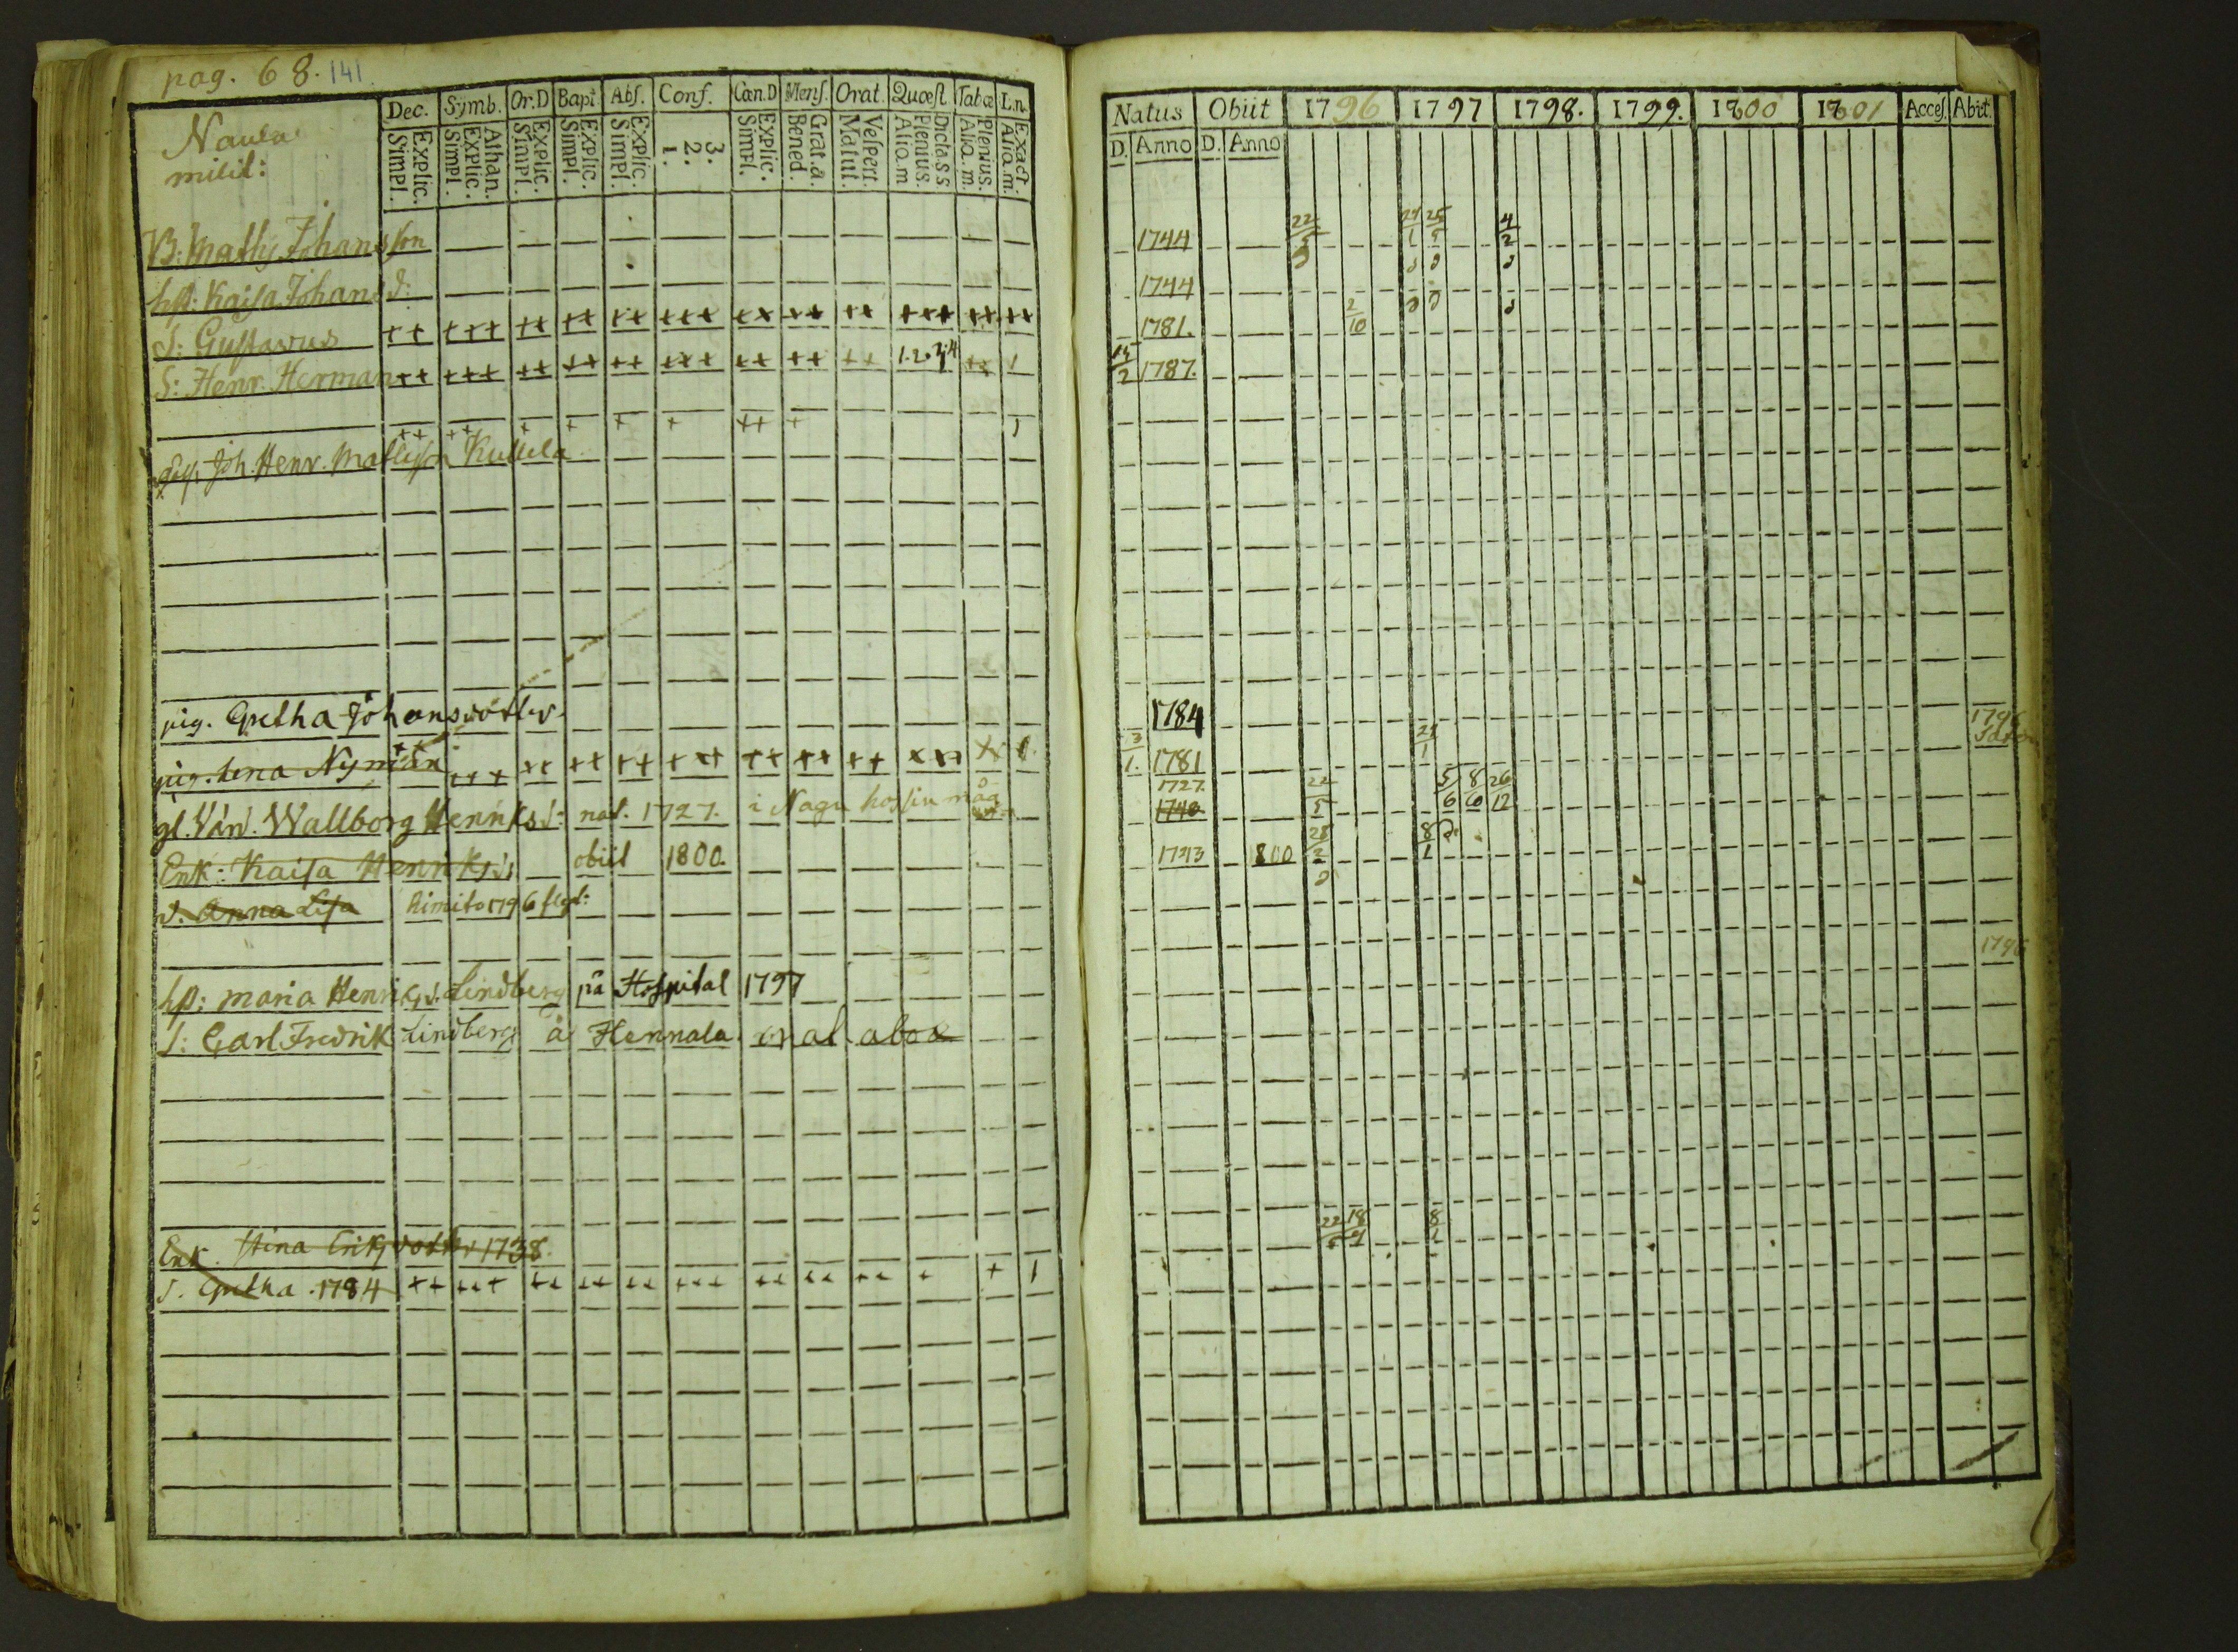 pag. 68. 141.
Naula
milit:
Dec. Symb. Or.D Bapt. Abs. Conf. Cœn.D Mens. Orat. Quæst. Tabæ L.n.
Explic. Simpl. Athan. Explic. Simpl. Explic. Simpl. Explic. Simpl. Explic. Simpl. 3. 2. 1. Explic. Simpl. Grat. a. Bened. Vespert. Matut. Dicta s s Plenius. Aliq. m Plenius. Aliq. m. Exact. Aliq. m.
Natus Obiit 1796 1797 1798. 1799. 1800 1801 Acces. Abit.
D. Anno D. Anno
B: Matts Johansson 1744 22/5 24/1 25/5 4/2
hst: Kaisa Johansd: 1744
S: Gustavus ++ +++ ++ ++ ++ +++ ++ ++ ++ +++ ++ ++ 1781. 2/10
S: Henr. Herman ++ +++ ++ ++ ++ +++ ++ ++ ++ 1.2.3.4 ++ 1 15/2 1787.
++ ++ + + + + ++ + 1
Joh. Henr. Mattsson Kullela
pig. Gretha Johansdotter 1784
pig. Lena Nyman ++ +++ ++ ++ ++ +++ ++ ++ ++ 3/1. 1781 24/1 1796
gl. Wallborg Henriksd: nat. 1727. i Nagu hos sin måg 1727. 1740 22/5 5/6 8/10 26/12
Enk: Kaisa Henriksd: obiit 1800. 1743 800 28/2 8/1
d. Anna Lisa Kimito 1796
hst: Maria Henriksd. Lindberg på Hospital 1797 1796
S: Carl Fredrik Lindberg å Hennala
Enk. Stina Eriksdotter 1738. 22/5 18/9 8/1
d. Gretha 1784 ++ +++ ++ ++ ++ +++ ++ ++ ++ + + 1